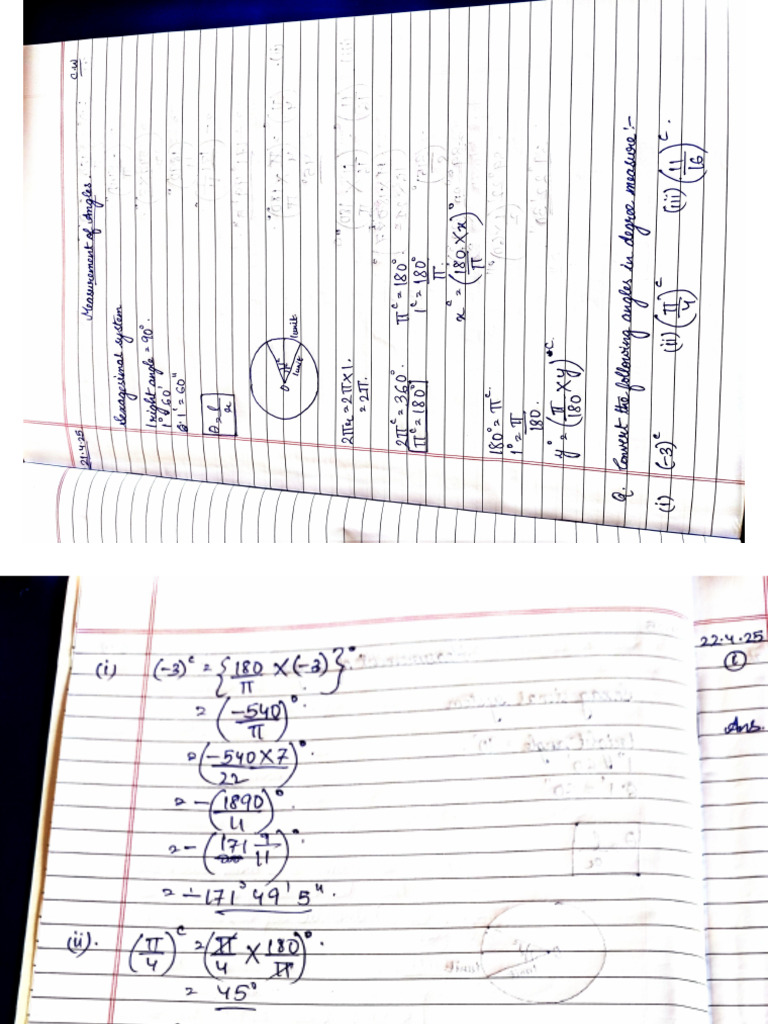 C.W
21.4.25 Measurement of Angles.
Sexagesimal system
1 right angle = 90°.
1° = 60'
1' = 60"
θ = l/r
O 1ᶜ 1 unit 1 unit
2πr = 2π×1.
= 2π.
2πᶜ = 360° πᶜ = 180°.
πᶜ = 180° 1ᶜ = 180°/π.
xᶜ = (180/π × x)°
180° = πᶜ.
1° = π/180.
y° = (π/180 × y)ᶜ.
Q. Convert the following angles in degree measure:-
(i) (-3)ᶜ (ii) (π/4)ᶜ (iii) (11/16)ᶜ.
(i) (-3)ᶜ = {180/π × (-3)}°.
= (-540/π)°.
= (-540×7/22)°.
= -(1890/11)°.
= -(171 9/11)°.
= -171° 49' 5".
(ii). (π/4)ᶜ = (π/4 × 180/π)°.
= 45°
22.4.25
Ans.